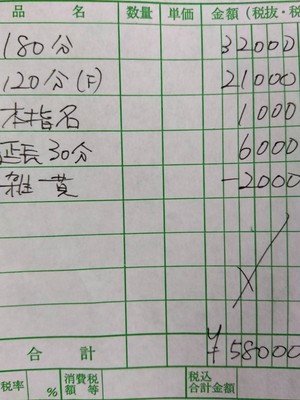 品 名 数量 単価 金額(税抜・税
180分 32000
120分(F) 21000
本指名 1000
延長30分 6000
雑費 -2000
合計 ¥58000
税率 % 消費税額等 税込合計金額